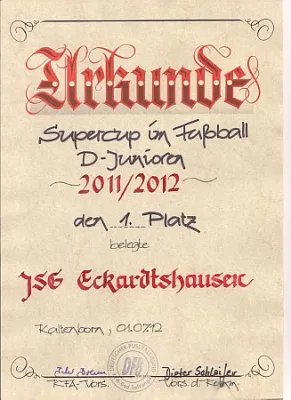 Urkunde
Supercup im Fußball
D-Junioren
~2011/2012~
den 1. Platz
belegte
JSG Eckardtshausen
Kaltenborn, 01.07.12
DFB
Dieter Schleifer
KFA-Vors. Vors. d. Komm.